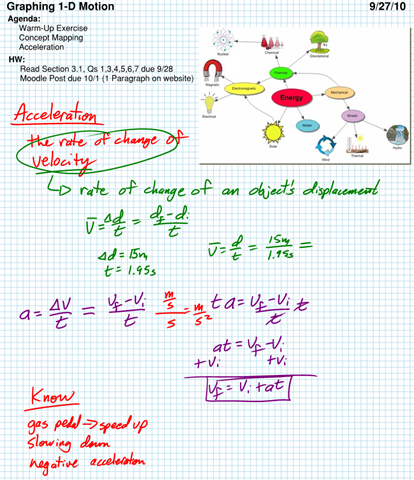 Graphing 1-D Motion 9/27/10
Agenda:
Warm-Up Exercise
Concept Mapping
Acceleration
HW:
Read Section 3.1, Qs 1,3,4,5,6,7 due 9/28
Moodle Post due 10/1 (1 Paragraph on website)
Nuclear
Chemical
Gravitational
Magnetic
Potential
Electromagnetic
Energy
Mechanical
Electrical
Kinetic
Solar
Wind
Thermal
Hydro
Acceleration
the rate of change of
velocity
↳ rate of change of an object's displacement
v̄ = Δd/t = (df - di)/t
Δd = 15m
t = 1.95s
v̄ = d/t = 15m/1.95s =
a = Δv/t = (vf - vi)/t (m/s)/s = m/s²
t a = (vf - vi)/t t
at = vf - vi
+vi +vi
vf = vi + at
Know
gas pedal → speed up
slowing down
negative acceleration